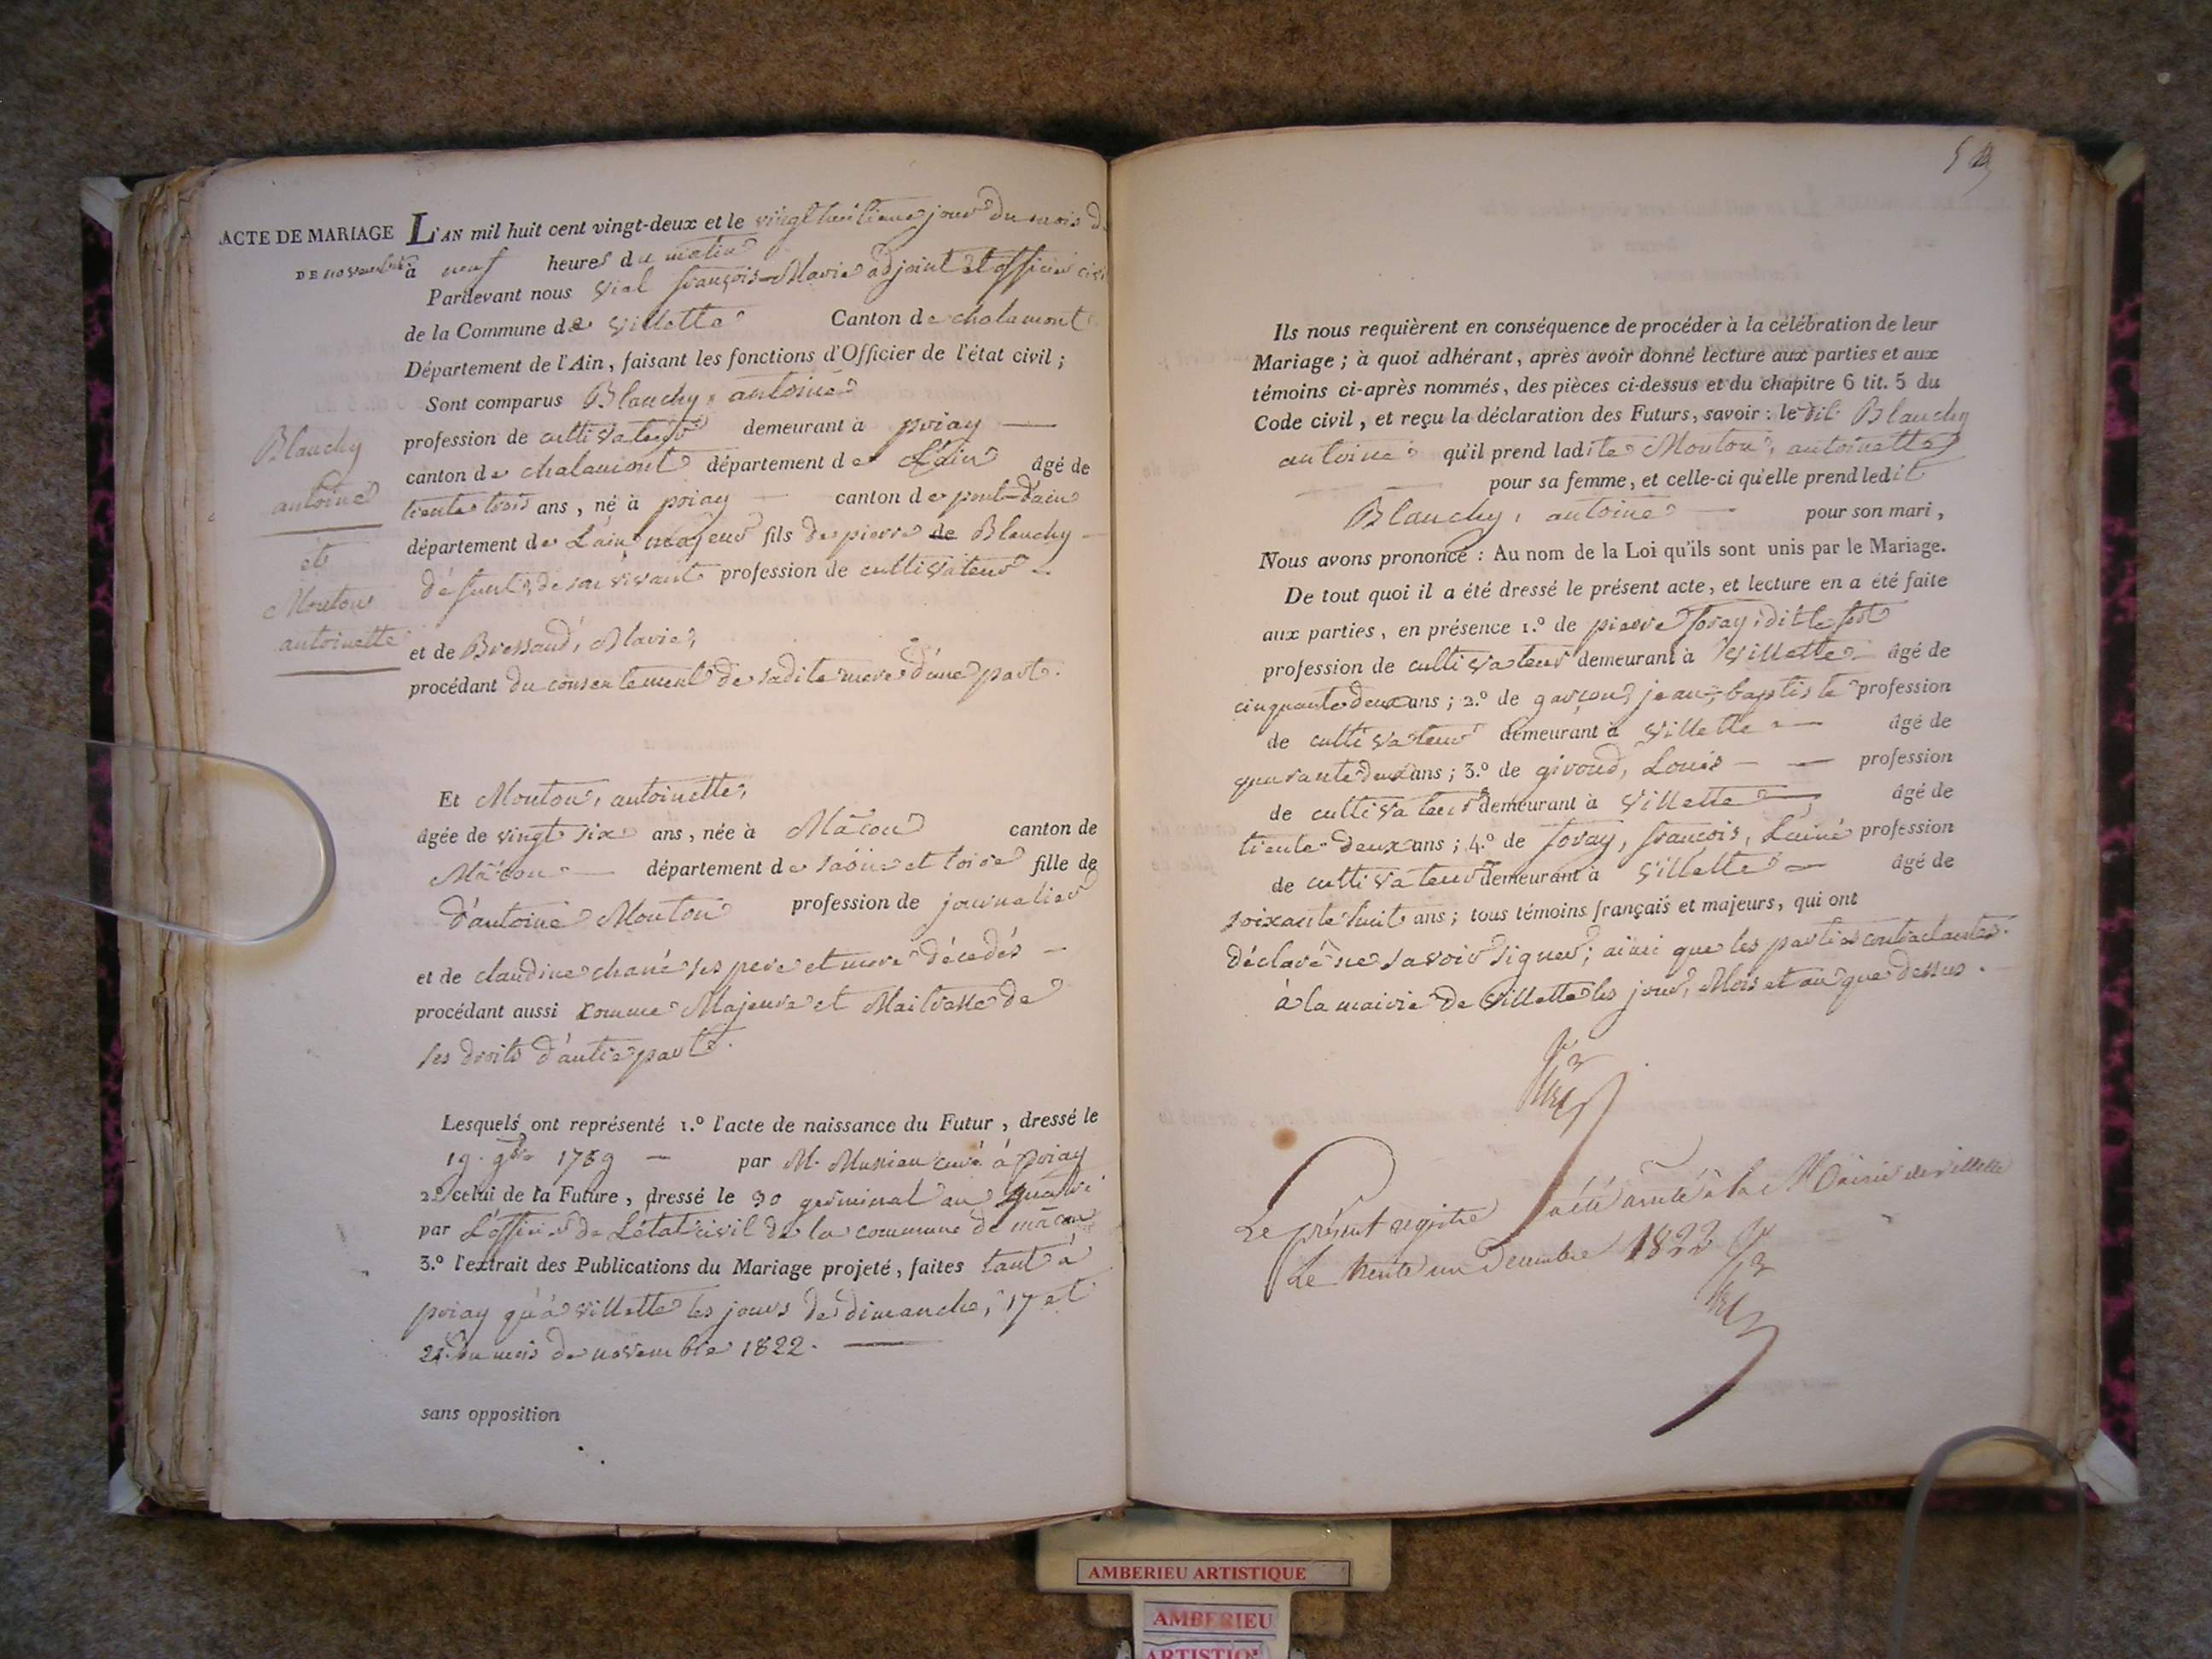 ACTE DE MARIAGE L'AN mil huit cent vingt-deux et le vingt huitieme jour du mois d
DE novembre à neuf heures du matin
Pardevant nous Vial françois-Marie adjoint et officier civi
de la Commune de Villette Canton de chalamont
Département de l'Ain, faisant les fonctions d'Officier de l'état civil ;
Sont comparus Blanchy, antoine
profession de cultivateur demeurant à priay
canton de chalamont département de L'ain âgé de
trente trois ans, né à priay canton de pont-d'ain
département de L'ain, majeur fils de pierre de Blanchy
défunt, de son vivant profession de cultivateur
et de Bressand, Marie,
procédant du consentement de sadite mere d'une part.
Blanchy
antoine
et
Mouton
antoinette
Et Mouton, antoinette,
âgée de vingt six ans, née à Mâcon canton de
Mâcon département de saône et loire fille de
d'antoine Mouton profession de journalier
et de claudine chané ses pere et mere décedés
procédant aussi comme Majeure et Maitresse de
ses droits d'autre part.
Lesquels ont représenté 1.º l'acte de naissance du Futur, dressé le
19. 9bre 1789 par M. curé à priay
2.º celui de la Future, dressé le 30 germinal an quatre
par L'officier de L'état civil de la commune de mâcon
3.º l'extrait des Publications du Mariage projeté, faites tant à
priay qu'à villette les jours de dimanche, 17 et
24 du mois de novembre 1822.
sans opposition
Ils nous requièrent en conséquence de procéder à la célébration de leur
Mariage ; à quoi adhérant, après avoir donné lecture aux parties et aux
témoins ci-après nommés, des pièces ci-dessus et du chapitre 6 tit. 5 du
Code civil, et reçu la déclaration des Futurs, savoir : le dit Blanchy
antoine qu'il prend ladite Mouton, antoinette
pour sa femme, et celle-ci qu'elle prend ledit
Blanchy, antoine pour son mari,
Nous avons prononcé : Au nom de la Loi qu'ils sont unis par le Mariage.
De tout quoi il a été dressé le présent acte, et lecture en a été faite
aux parties, en présence 1.º de pierre foray, dit le fort
profession de cultivateur demeurant à Villette âgé de
cinquante deux ans ; 2.º de garçon, jean-baptiste profession
de cultivateur demeurant à Villette âgé de
quarante deux ans ; 3.º de giroud, Louis profession
de cultivateur demeurant à Villette, âgé de
trente-deux ans ; 4.º de foray, françois, L'ainé profession
de cultivateur demeurant à Villette âgé de
soixante huit ans ; tous témoins français et majeurs, qui ont
déclaré ne savoir signer, ainsi que les parties contractantes.
à la mairie de Villette les jour, Mois et an que dessus.
Le présent registre a été arreté à la Mairie de villette
Le trente un Decembre 1822
AMBERIEU ARTISTIQUE
AMBERIEU
ARTISTIQ